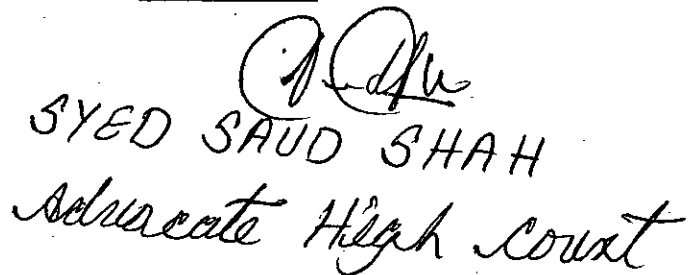 SYED SAUD SHAH
Advocate High Court